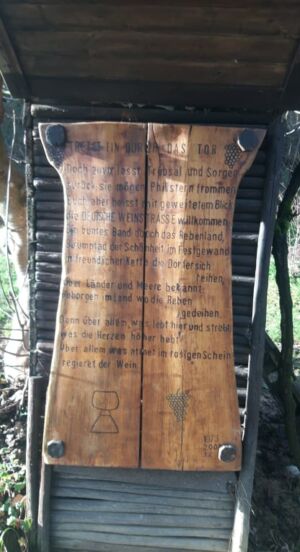 TRETET EIN DURCH DAS TOR
Doch zuvor lasst Trübsal und Sorgen
zurück sie mögen Philistern frommen
Euch aber heisst mit geweitetem Blick
die DEUTSCHE WEINSTRASSE willkommen
Ein buntes Band durch das Rebenland,
Schönheit im Festgewand
in freundlicher Kette die Dörfer sich
reihen,
über Länder und Meere bekannt
geborgen im Land wo die Reben
gedeihen.
Denn über allem was lebt hier und strebt
was die Herzen höher hebt
über allem was atmet im rosigen Schein
regieret der Wein.